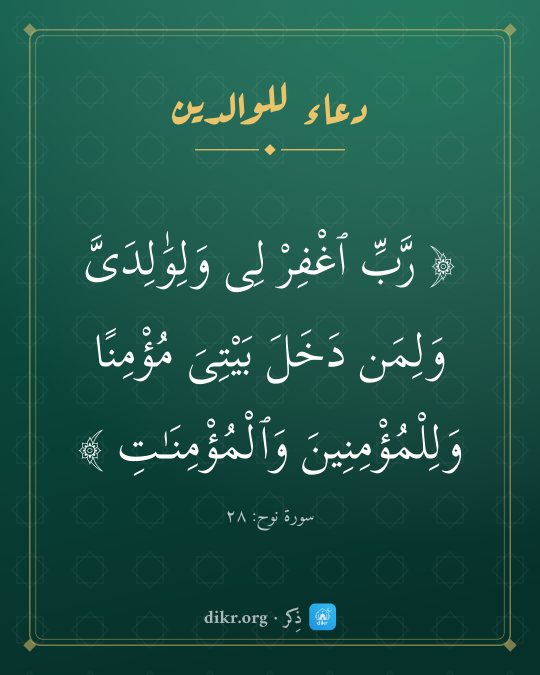 دعاء للوالدين
﴿ رَّبِّ ٱغْفِرْ لِى وَلِوَٰلِدَىَّ
وَلِمَن دَخَلَ بَيْتِىَ مُؤْمِنًا
وَلِلْمُؤْمِنِينَ وَٱلْمُؤْمِنَـٰتِ ﴾
سورة نوح: ٢٨
ذِكر · dikr.org
dikr